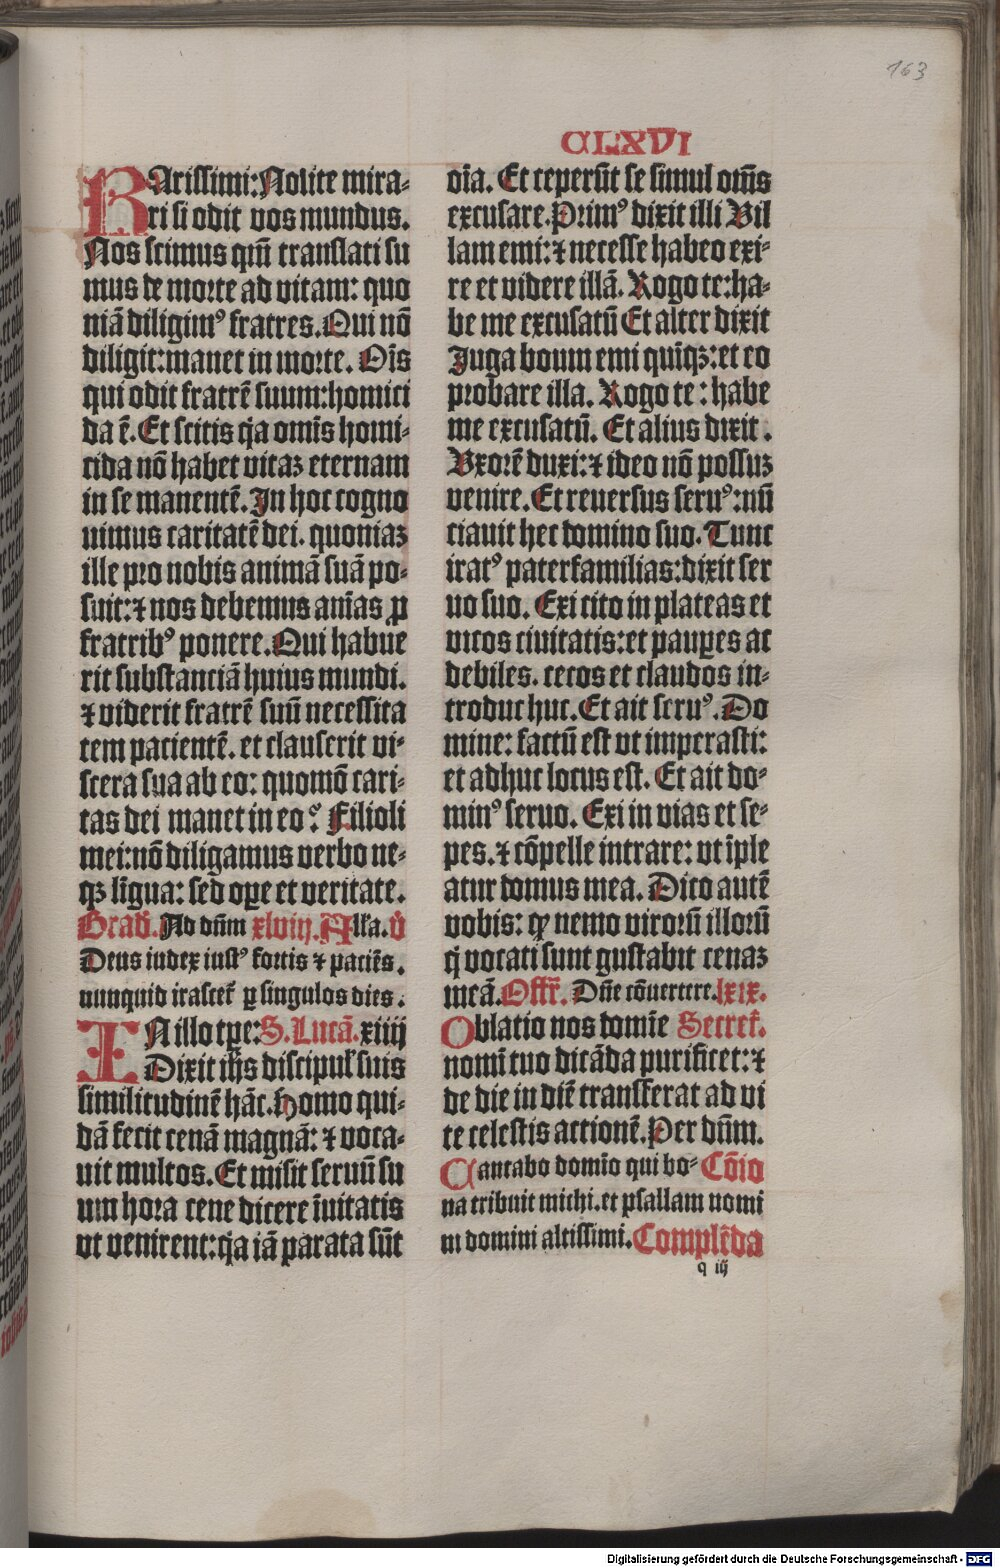 163
CLXVI
KArissimi: Nolite mira-
ri si odit vos mundus.
Nos scimus qm̄ translati su
mus de morte ad vitam: quo
niā diligimꝰ fratres. Qui nō
diligit: manet in morte. Oīs
qui odit fratrē suum: homici
da ē. Et scitis q̇a omīs homi-
cida nō habet vitaꝫ eternam
in se manentē. In hoc cogno
uimus caritatē dei. quoniaꝫ
ille pro nobis animā suā po-
suit: ⁊ nos debemus aīas ꝓ
fratribꝰ ponere. Qui habue
rit substanciā huius mundi.
⁊ viderit fratrē suū necessita
tem pacientē. et clauserit vi-
scera sua ab eo: quomō cari-
tas dei manet in eo? Filioli
mei: nō diligamus verbo ne-
qꝫ līgua: sed oꝑe et veritate.
Grad̄. Ad dn̄m xlviij. Alla. v̄
Deus iudex iustꝰ fortis ⁊ paciēs.
nunquid irasceť ꝑ singulos dies.
IN illo tꝑe: S. Lucā. xiiij
Dixit ihs̄ discipul' suis
similitudinē hāc. Homo qui-
dā fecit cenā magnā: ⁊ voca-
uit multos. Et misit seruū su
um hora cene dicere īuitatis
vt venirent: q̇a iā parata sūt
oīa. Et ceperūt se simul om̄s
excusare. Primꝰ dixit illi Vil
lam emi: ⁊ necesse habeo exi-
re et videre illā. Rogo te: ha-
be me excusatū Et alter dixit
Juga boum emi quīqꝫ: et eo
probare illa. Rogo te: habe
me excusatū. Et alius dixit.
Vxorē duxi: ⁊ ideo nō possuꝫ
venire. Et reuersus seruꝰ: nū
ciauit hec domino suo. Tunc
iratꝰ paterfamilias: dixit ser
uo suo. Exi cito in plateas et
vicos ciuitatis: et pauꝑes ac
debiles. cecos et claudos in-
troduc huc. Et ait seruꝰ. Do
mine: factū est vt imperasti:
et adhuc locus est. Et ait do-
minꝰ seruo. Exi in vias et se-
pes. ⁊ cōpelle intrare: vt īple
atur domus mea. Dico autē
vobis: ꝙ nemo virorū illorū
q̇ vocati sunt gustabit cenaꝫ
meā. Offr̄. Dn̄e cōuertere. lxix.
Oblatio nos domīe Secreť.
nomī tuo dicāda purificet: ⁊
de die in diē transferat ad vi
te celestis actionē. Per dn̄m.
Cantabo domīo qui bo- Cōio
na tribuit michi. et psallam nomi
ni domini altissimi. Complēda
q iij
Digitalisierung gefördert durch die Deutsche Forschungsgemeinschaft - DFG